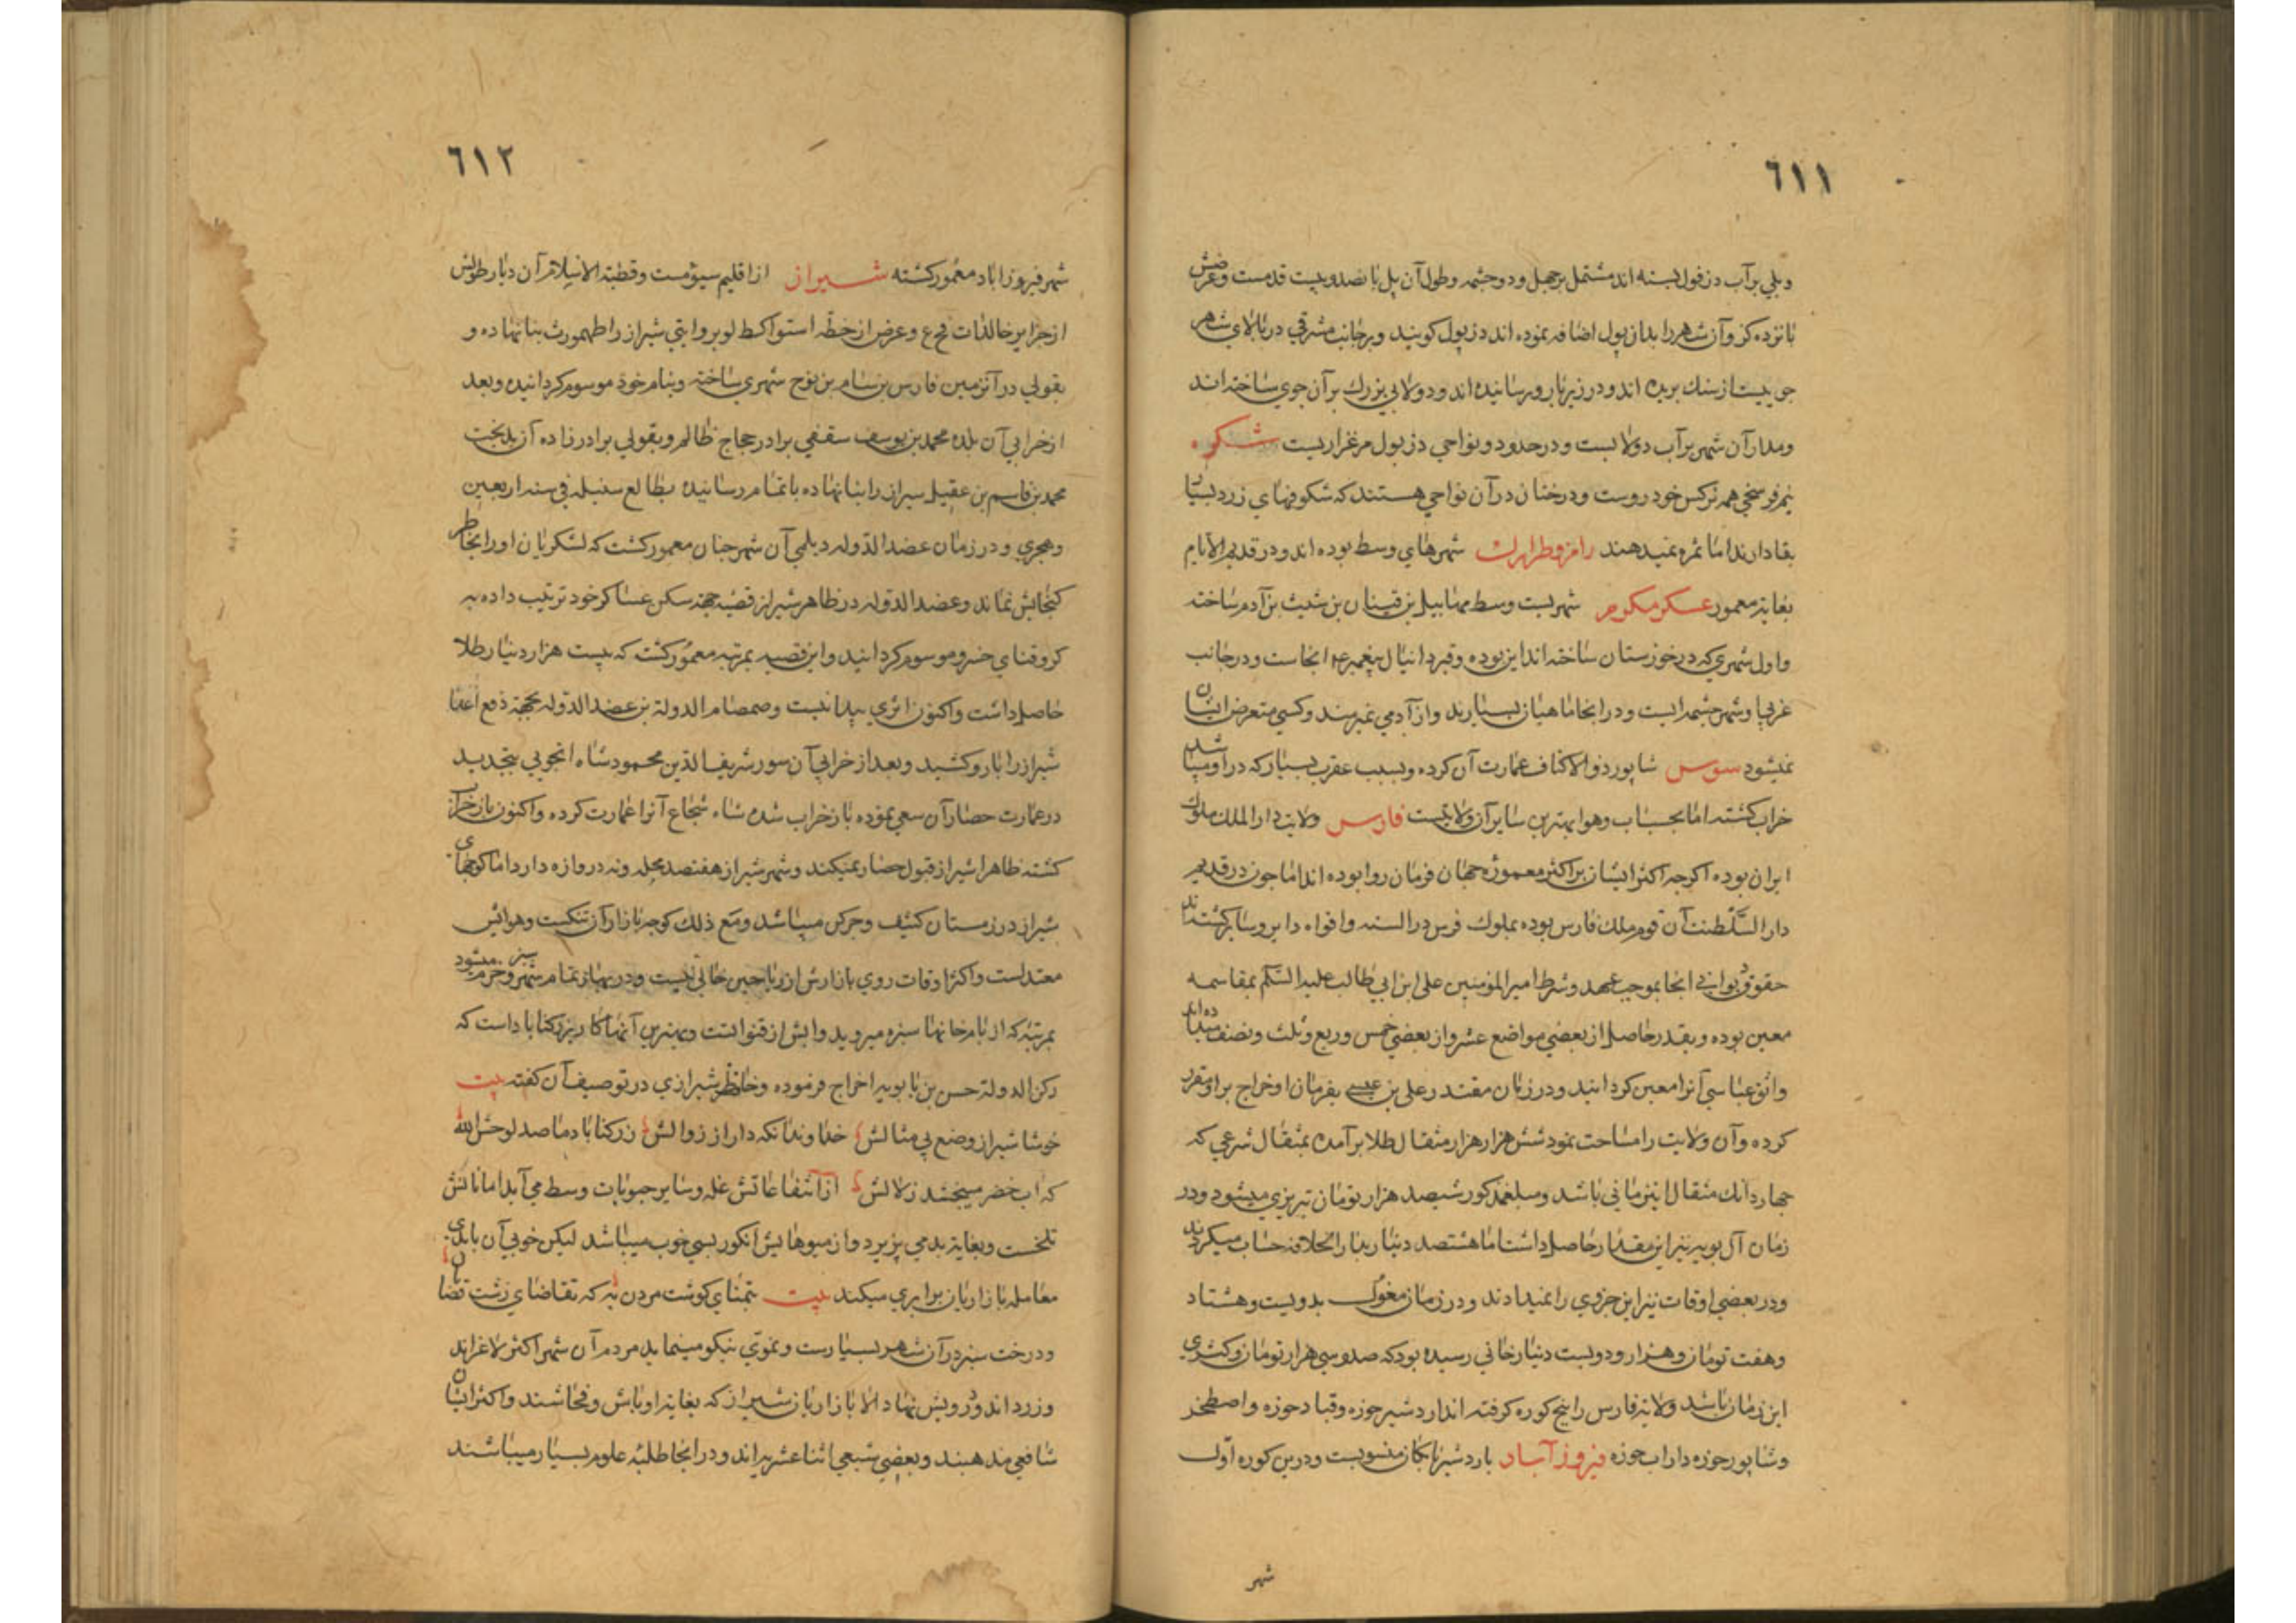 ٦١١
وپلي برآب دزفول بسته اند مشتمل برچهل ودو چشمه وطول آن پل پانصد وبيست قدمست وعرضش
پانزده کز وآن شهر را بدان پول اضافه نموده اند دزپول کويند وبرجانب مشرقي دربالاي شهر
جويست از سنك بريده اند ودر زير بار ورسانيده اند ودولابي بزرك برآن جوي ساخته اند
ومدار آن شهر برآب دولابست ودرحدود ونواحي دزپول مرغزاريست شکوه
نيم فرسخي همه نرکس خودروست ودرختان درآن نواحي هستند که شکوفهاي زرد بسيار
بقا دارند اما ثمره نميدهند رامز وطراول شهرهاي وسط بوده اند ودر قديم الايام
بغايت معمور عسکر مکرم شهريست وسط مهابيل بن قينان بن شيث بن آدم ساخته
واول شهري که درخوزستان ساخته اند اين بوده وقبر دانيال پيغمبر ع م انجاست ودرجانب
غربي او شهر چشمه ايست ودر انجا ماهيان بسيارند واز آدمي نميرمند وکسي متعرض ايشان
نميشود سوس شاپور ذوالاکتاف عمارت آن کرده وبسبب عقرب بسيار که دراو ميباشد
خراب کشته اما بحساب وهوا بهترين ساير آن ولايتست فارس ولايت دار الملك ملوك
ايران بوده اکرچه اکثر ايشان براکثر معموره جهان فرمان روا بوده اند اما چون درقديم
دار السلطنت آن قوم ملك فارس بوده بملوك فرس در السنه وافواه داير وساير کشته اند
حقوق ديواني انجا بموجب عهد وشرط امير المؤمنين علي ابن ابي طالب عليه السلم بمقاسمه
معين بوده وبقدر حاصل از بعضي مواضع عشر واز بعضي خمس وربع وثلث ونصف ميداده اند
واثق عباسي آنرا معين کردانيد ودر زمان مقتدر علي بن عيسي بفرمان او خراج براو مقرر
کرده وآن ولايت را مساحت نمود شش هزار هزار مثقال طلا برآمده بمثقال شرعي که
چهار دانك مثقال اين زماني باشد ومبلغ مذکور شيصد هزار تومان تبريزي ميشود ودر
زمان آل بويه نيز اين مقدار حاصل داشت اما هشتصد دينار بدار الخلافه حساب ميکردند
ودر بعضي اوقات نيز اين جزوي را نميدادند ودر زمان مغول بدويست وهشتاد
وهفت تومان وهزار ودويست دينار خاني رسيده بود که صد وسي هزار تومان وکسري
اين زمان باشد ولايت فارس را پنج کوره کرفته اند اردشير حوزه وقباد حوزه واصطخر
وشاپور حوزه داراب حوزه فيروز آباد باردشير بابکان منسوبست ودرين کوره اول
شهر
٦١٢
شهر فيروز اباد معمور کشته شيراز از اقليم سيومست وقطبة الاسلام آن ديار طولش
از جزاير خالدات فح ع وعرض از خط استوا کط لو بروايتي شيراز را طهمورث بنا نهاده و
بقولي در آنزمين فارس بن سام بن نوح شهري ساخته وبنام خود موسوم کردانيده وبعد
از خرابي آن بلده محمد بن يوسف سقفي برادر حجاج ظالم وبقولي برادر زاده آن بدبخت
محمد بن قاسم بن عقيل سيراز را بنا نهاده باتمام رسانيده بطالع سنبله في سنه اربعين
وهجري ودر زمان عضد الدوله ديلمي آن شهر چنان معمور کشت که لشکريان او را بخاطر
کنجايش نماند وعضد الدوله در ظاهر شيراز قصبه جهة سکن عساکر خود ترتيب داده به
کرو فناي خسرو موسوم کردانيد واين قصبه بمرتبه معمور کشت که بيست هزار دينار طلا
حاصل داشت واکنون اثري پيدا نيست وصمصام الدولة بن عضد الدوله بجهة دفع اعدا
شيراز را بارو کشيد وبعد از خرابي آن سور شريف الدين محمود شاه انجويي بتجديد
در عمارت حصار آن سعي نموده باز خراب شده شاه شجاع آنرا عمارت کرده واکنون باز خراب
کشته ظاهرا شيراز قبول حصار نميکند وشهر شيراز هفتصد محله ونه دروازه دارد اما کوچهاي
شيراز در زمستان کثيف وچرکن ميباشد ومع ذلك کوچه بازار آن تنکست وهوايش
معتدلست واکثر اوقات روي بازارش از رياحين خالي نيست ودر بهار تمام شهر سبز وخرم ميشود
بمرتبه که از بام خانها سبزه ميرويد وابش از قنواتست وبهترين آنها کاريز رکناباد است که
رکن الدولة حسن بن بابويه اخراج فرموده وحافظ شيرازي در توصيف آن کفته بيت
خوشا شيراز ووضع بي مثالش خداوندا نکه دار از زوالش ز رکناباد ما صد لوحش الله
که اب خضر ميبخشد زلالش از اتفاعاتش غله وساير حبوبات وسط مي آيد اما نانش
تلخست وبغايت بد مي پزيرد واز ميوهايش انکور بسي خوب ميباشد ليکن خوبي آن بابدي
معامله بازاريان برابري ميکند بيت بتمناي کوشت مردن به که تقاضاي زشت قصابان
ودرخت سبز درآن شهر بسيارست ونموي نيکو مينمايد مردم آن شهر اکثر لاغر اند
وزرد اند ودرويش نهاد الا بازاريان شيراز که بغايت اوباش وفحاشند واکثر ايشان
شافعي مذهبند وبعضي شيعي اثنا عشريه اند ودر انجا طلبه علوم بسيار ميباشند